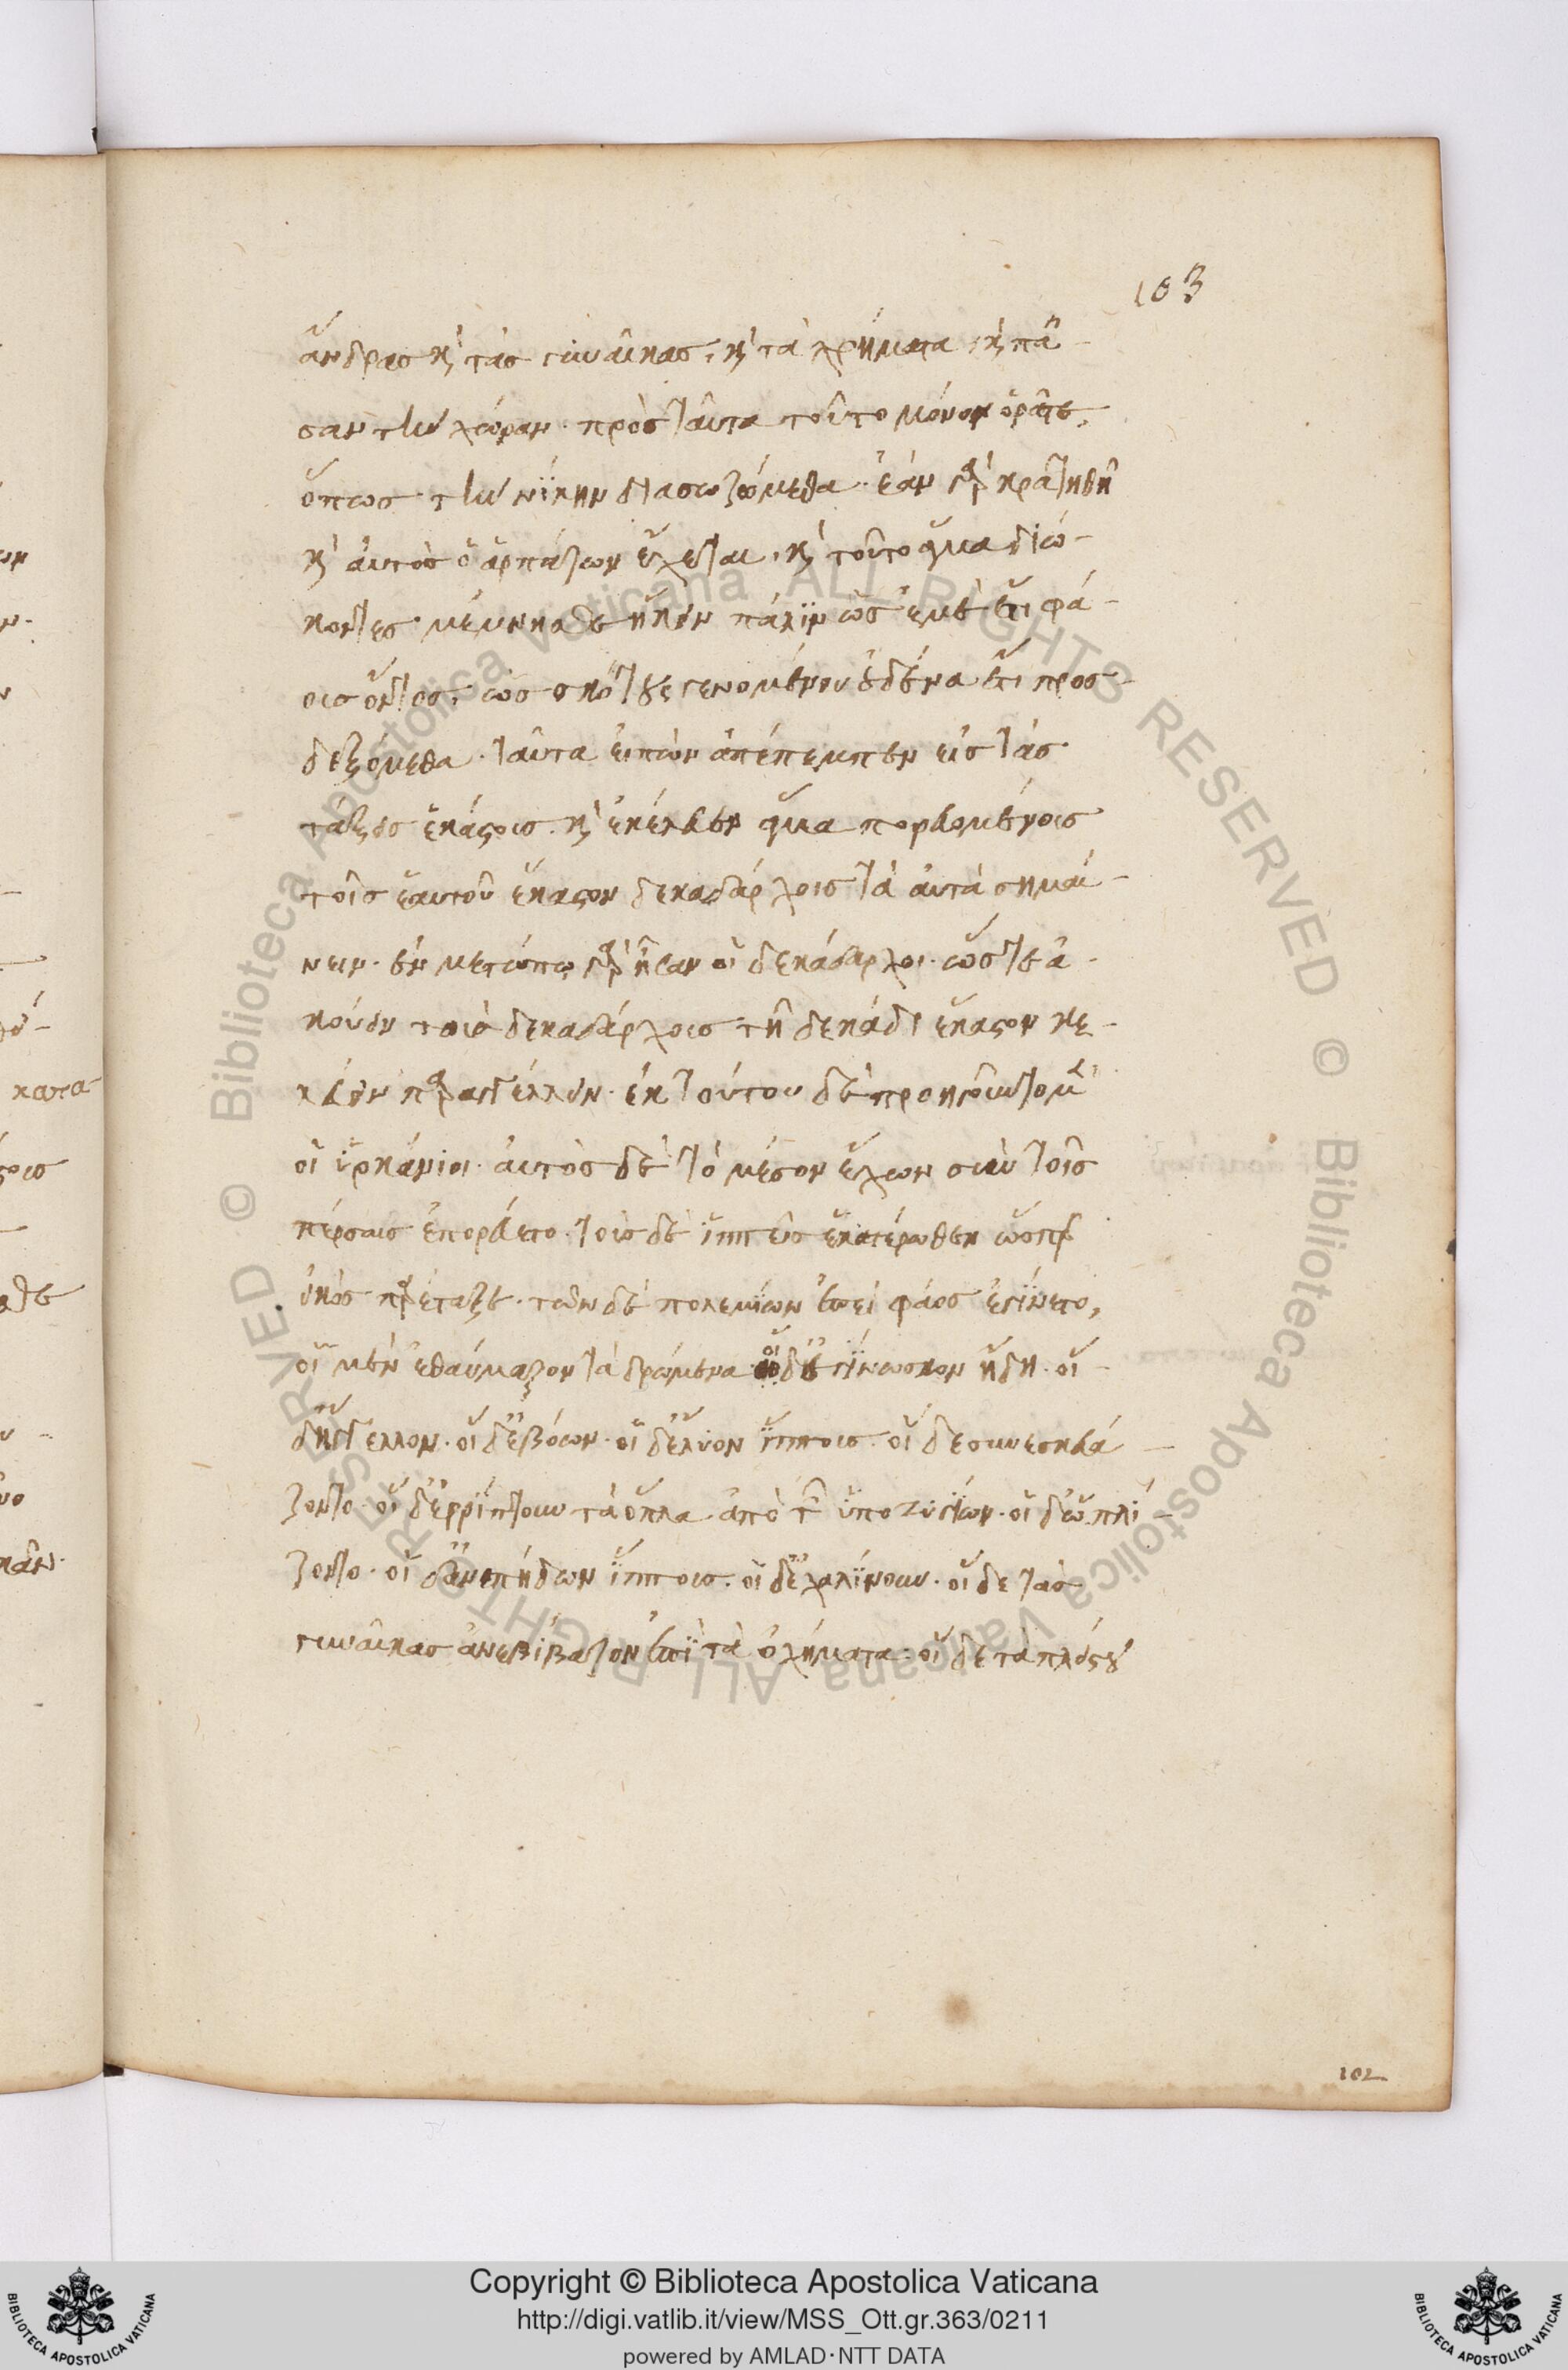 103
ἄνδρας κ̀ τὰς γυναῖκας, κ̀ τὰ χρήματα, κ̀ πᾶ-
σαν τὴν χώραν. πρὸς ταῦτα τοῦτο μόνον ὁρᾶτε,
ὅπως τὴν νίκην διασωζώμεθα. ἐὰν γὰρ κρατηθῆ
κ̀ αὐτὸς ὁ ἁρπάζων ἔχεται. κ̀ τοῦτο ἅμα διώ-
κοντες μέμνησθε ἥκειν πάλιν ὡς ἐμὲ ἔτι φά-
ους ὄντος, ὡς σκότους γενομένου οὐδένα ἔτι προσ-
δεξόμεθα. ταῦτα εἰπὼν ἀπέπεμπεν εἰς τὰς
τάξεις ἑκάστους. κ̀ ἐκέλευεν ἅμα πορευομένους
τοῖς ἑαυτοῦ ἕκαστον δεκαδάρχοις τὰ αὐτὰ σημαί-
νειν. ἐν μετώπω γὰρ ἦσαν οἱ δεκάδαρχοι. ὥστε ἀ-
κούειν τοὺς δεκαδάρχους τῆ δεκάδι ἕκαστον κε-
λεύειν παραγγέλλειν. ἐκ τούτου δὲ προηγοῦντο μὲν
οἱ ὑρκάνιοι. αὐτὸς δὲ τὸ μέσον ἔχων σὺν τοῖς
πέρσαις ἐπορεύετο. τοὺς δὲ ἱππεῖς ἑκατέρωθεν ὥσπερ
εἰκὸς παρέταξε. τῶν δὲ πολεμίων ἐπεὶ φάος ἐγίνετο,
οἱ μὲν ἐθαύμαζον τὰ δρώμενα οἱ δὲ γίνωσκον ἤδη. οἱ
δ' ἤγγελλον. οἱ δ' ἐβόων. οἱ δ' ἔλυον ἵππους. οἱ δὲ συνεσκευά-
ζοντο. οἱ δ' ἐρρίπτουν τὰ ὅπλα ἀπὸ τῶν ὑποζυγίων. οἱ δ' ὡπλί-
ζοντο. οἱ δ' ἀνεπήδων ἵππους. οἱ δ' ἐχαλίνουν. οἱ δὲ τὰς
γυναῖκας ἀνεβίβαζον ἐπὶ τὰ ὀχήματα. οἱ δὲ τὰ πλείστου
102
Copyright © Biblioteca Apostolica Vaticana
http://digi.vatlib.it/view/MSS_Ott.gr.363/0211
powered by AMLAD·NTT DATA